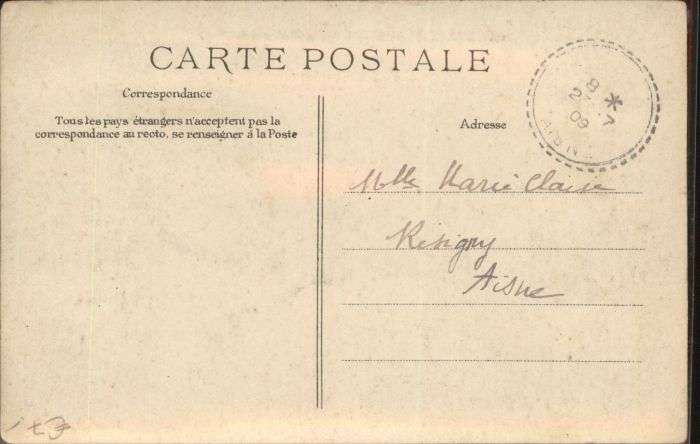 CARTE POSTALE
Correspondance
Tous les pays étrangers n'acceptent pas la
correspondance au recto, se renseigner à la Poste
Adresse
8 *
2 7
09
AISNE
Melle Marie Claire
Résigny
Aisne